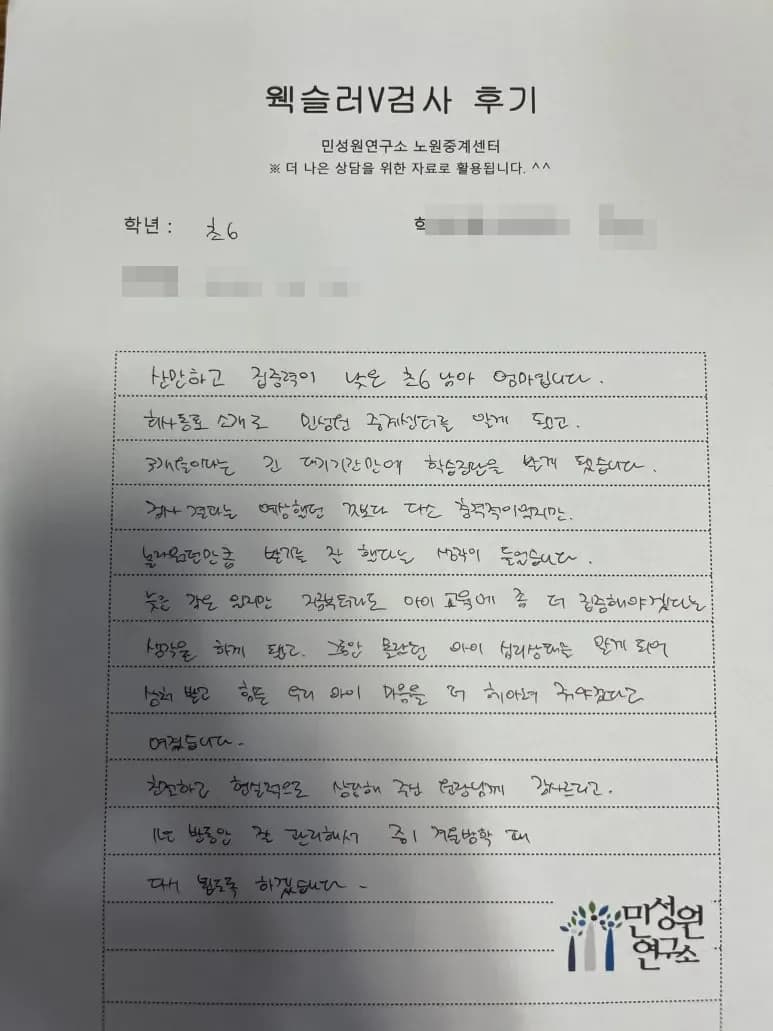 웩슬러V검사 후기
민성원연구소 노원중계센터
※ 더 나은 상담을 위한 자료로 활용됩니다. ^^
학년 : 초6
학
산만하고 집중력이 낮은 초6 남아 엄마입니다.
회사동료 소개로 민성원 중계센터를 알게 됐고.
3개월이라는 긴 대기기간만에 학습진단을 받게 됐습니다.
검사 결과는 예상했던 것보다 다소 충격적이었지만.
놀라웠던만큼 받기를 잘 했다는 생각이 들었습니다.
늦은 감은 있지만 지금부터라도 아이 교육에 좀 더 집중해야겠다는
생각을 하게 됐고. 그동안 몰랐던 아이 심리상태를 알게 되어
상처 받고 힘든 우리 아이 마음을 더 헤아려 줘야겠다고
여겼습니다.
친절하고 현실적으로 상담해 주신 원장님께 감사드리고.
1년 반동안 잘 관리해서 중1 겨울방학 때
다시 뵙도록 하겠습니다.
민성원
연구소